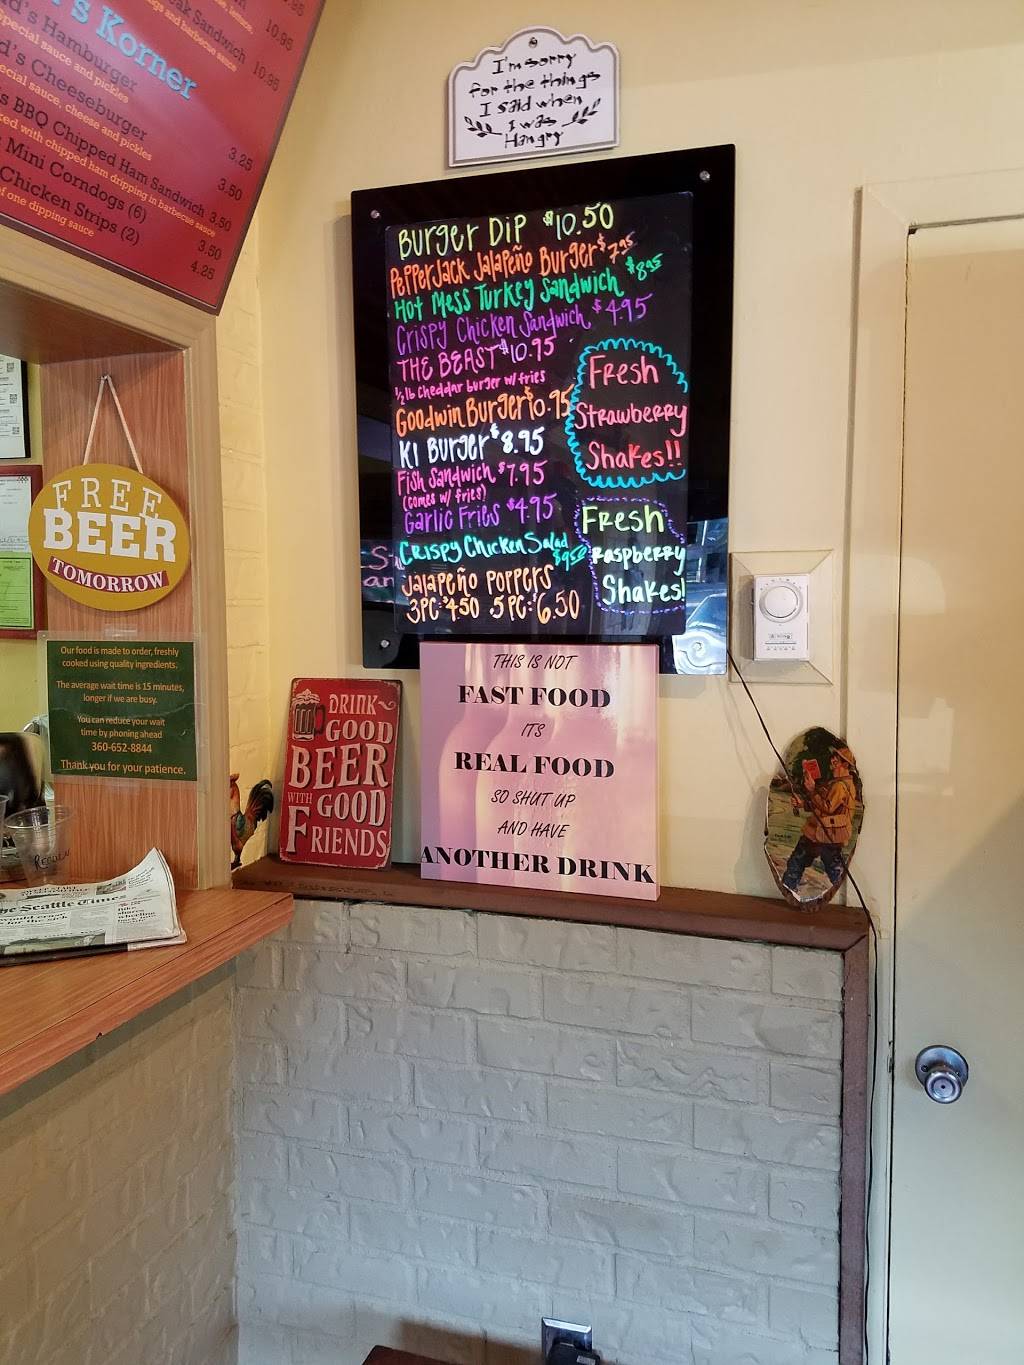 I'm sorry
for the things
I said when
I was
Hangry
Burger Dip $10.50
PepperJack Jalapeño Burger $7.95
Hot Mess Turkey Sandwich $8.95
Crispy Chicken Sandwich $4.95
THE BEAST $10.95
1/2 lb cheddar burger w/ fries
Goodwin Burger $10.95
KI Burger $8.95
Fish Sandwich $7.95
(comes w/ fries)
Garlic Fries $4.95
Crispy Chicken Salad
$9.50
Jalapeño Poppers
3PC: $4.50 5PC: $6.50
Fresh
Strawberry
Shakes!!
Fresh
Raspberry
Shakes!
's Korner
Sandwich 10.95
and barbecue sauce
10.95
's Hamburger
special sauce and pickles
3.25
's Cheeseburger
special sauce, cheese and pickles
3.50
BBQ Chipped Ham Sandwich 3.50
with chipped ham dripping in barbecue sauce
Mini Corndogs (6)
3.50
Chicken Strips (2)
4.25
of one dipping sauce
FREE
BEER
TOMORROW
Our food is made to order, freshly
cooked using quality ingredients.
The average wait time is 15 minutes,
longer if we are busy.
You can reduce your wait
time by phoning ahead
360-652-8844
Thank you for your patience.
DRINK
GOOD
BEER
WITH GOOD
FRIENDS
THIS IS NOT
FAST FOOD
ITS
REAL FOOD
SO SHUT UP
AND HAVE
ANOTHER DRINK
Seattle Times